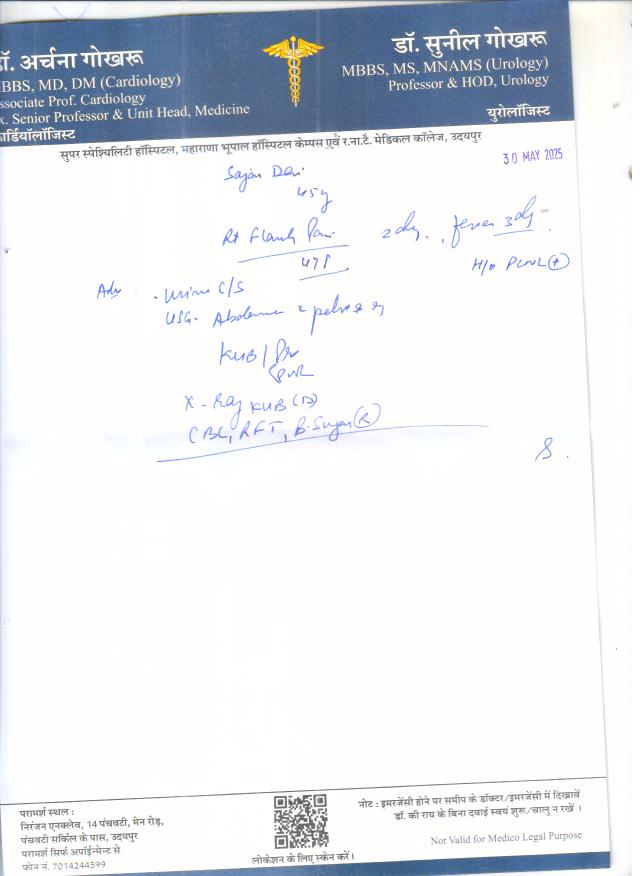 डॉ. अर्चना गोखरू
MBBS, MD, DM (Cardiology)
Associate Prof. Cardiology
Ex. Senior Professor & Unit Head, Medicine
कार्डियॉलॉजिस्ट
डॉ. सुनील गोखरू
MBBS, MS, MNAMS (Urology)
Professor & HOD, Urology
युरोलॉजिस्ट
सुपर स्पेश्यिलिटी हॉस्पिटल, महाराणा भूपाल हॉस्पिटल केम्पस एवं र.ना.टै. मेडिकल कॉलेज, उदयपुर
30 MAY 2025
Sajan Devi
45y
Rt Flank Pain 2 day, fever 3 day
H/o PCNL (+)
Adv. Urine C/S
USG. Abdomen pelvis
KUB /
X-Ray KUB
CBC, RFT, B. Sugar (R)
परामर्श स्थल :
निरंजन एनक्लेव, 14 पंचवटी, मेन रोड़,
पंचवटी सर्किल के पास, उदयपुर
परामर्श सिर्फ अपॉईन्मेण्ट से
फोन नं. 7014244599
लोकेशन के लिए स्केन करें।
नोट : इमरजेंसी होने पर समीप के डॉक्टर/इमरजेंसी में दिखावें
डॉ. की राय के बिना दवाई स्वयं शुरू/चालु न रखें ।
Not Valid for Medico Legal Purpose